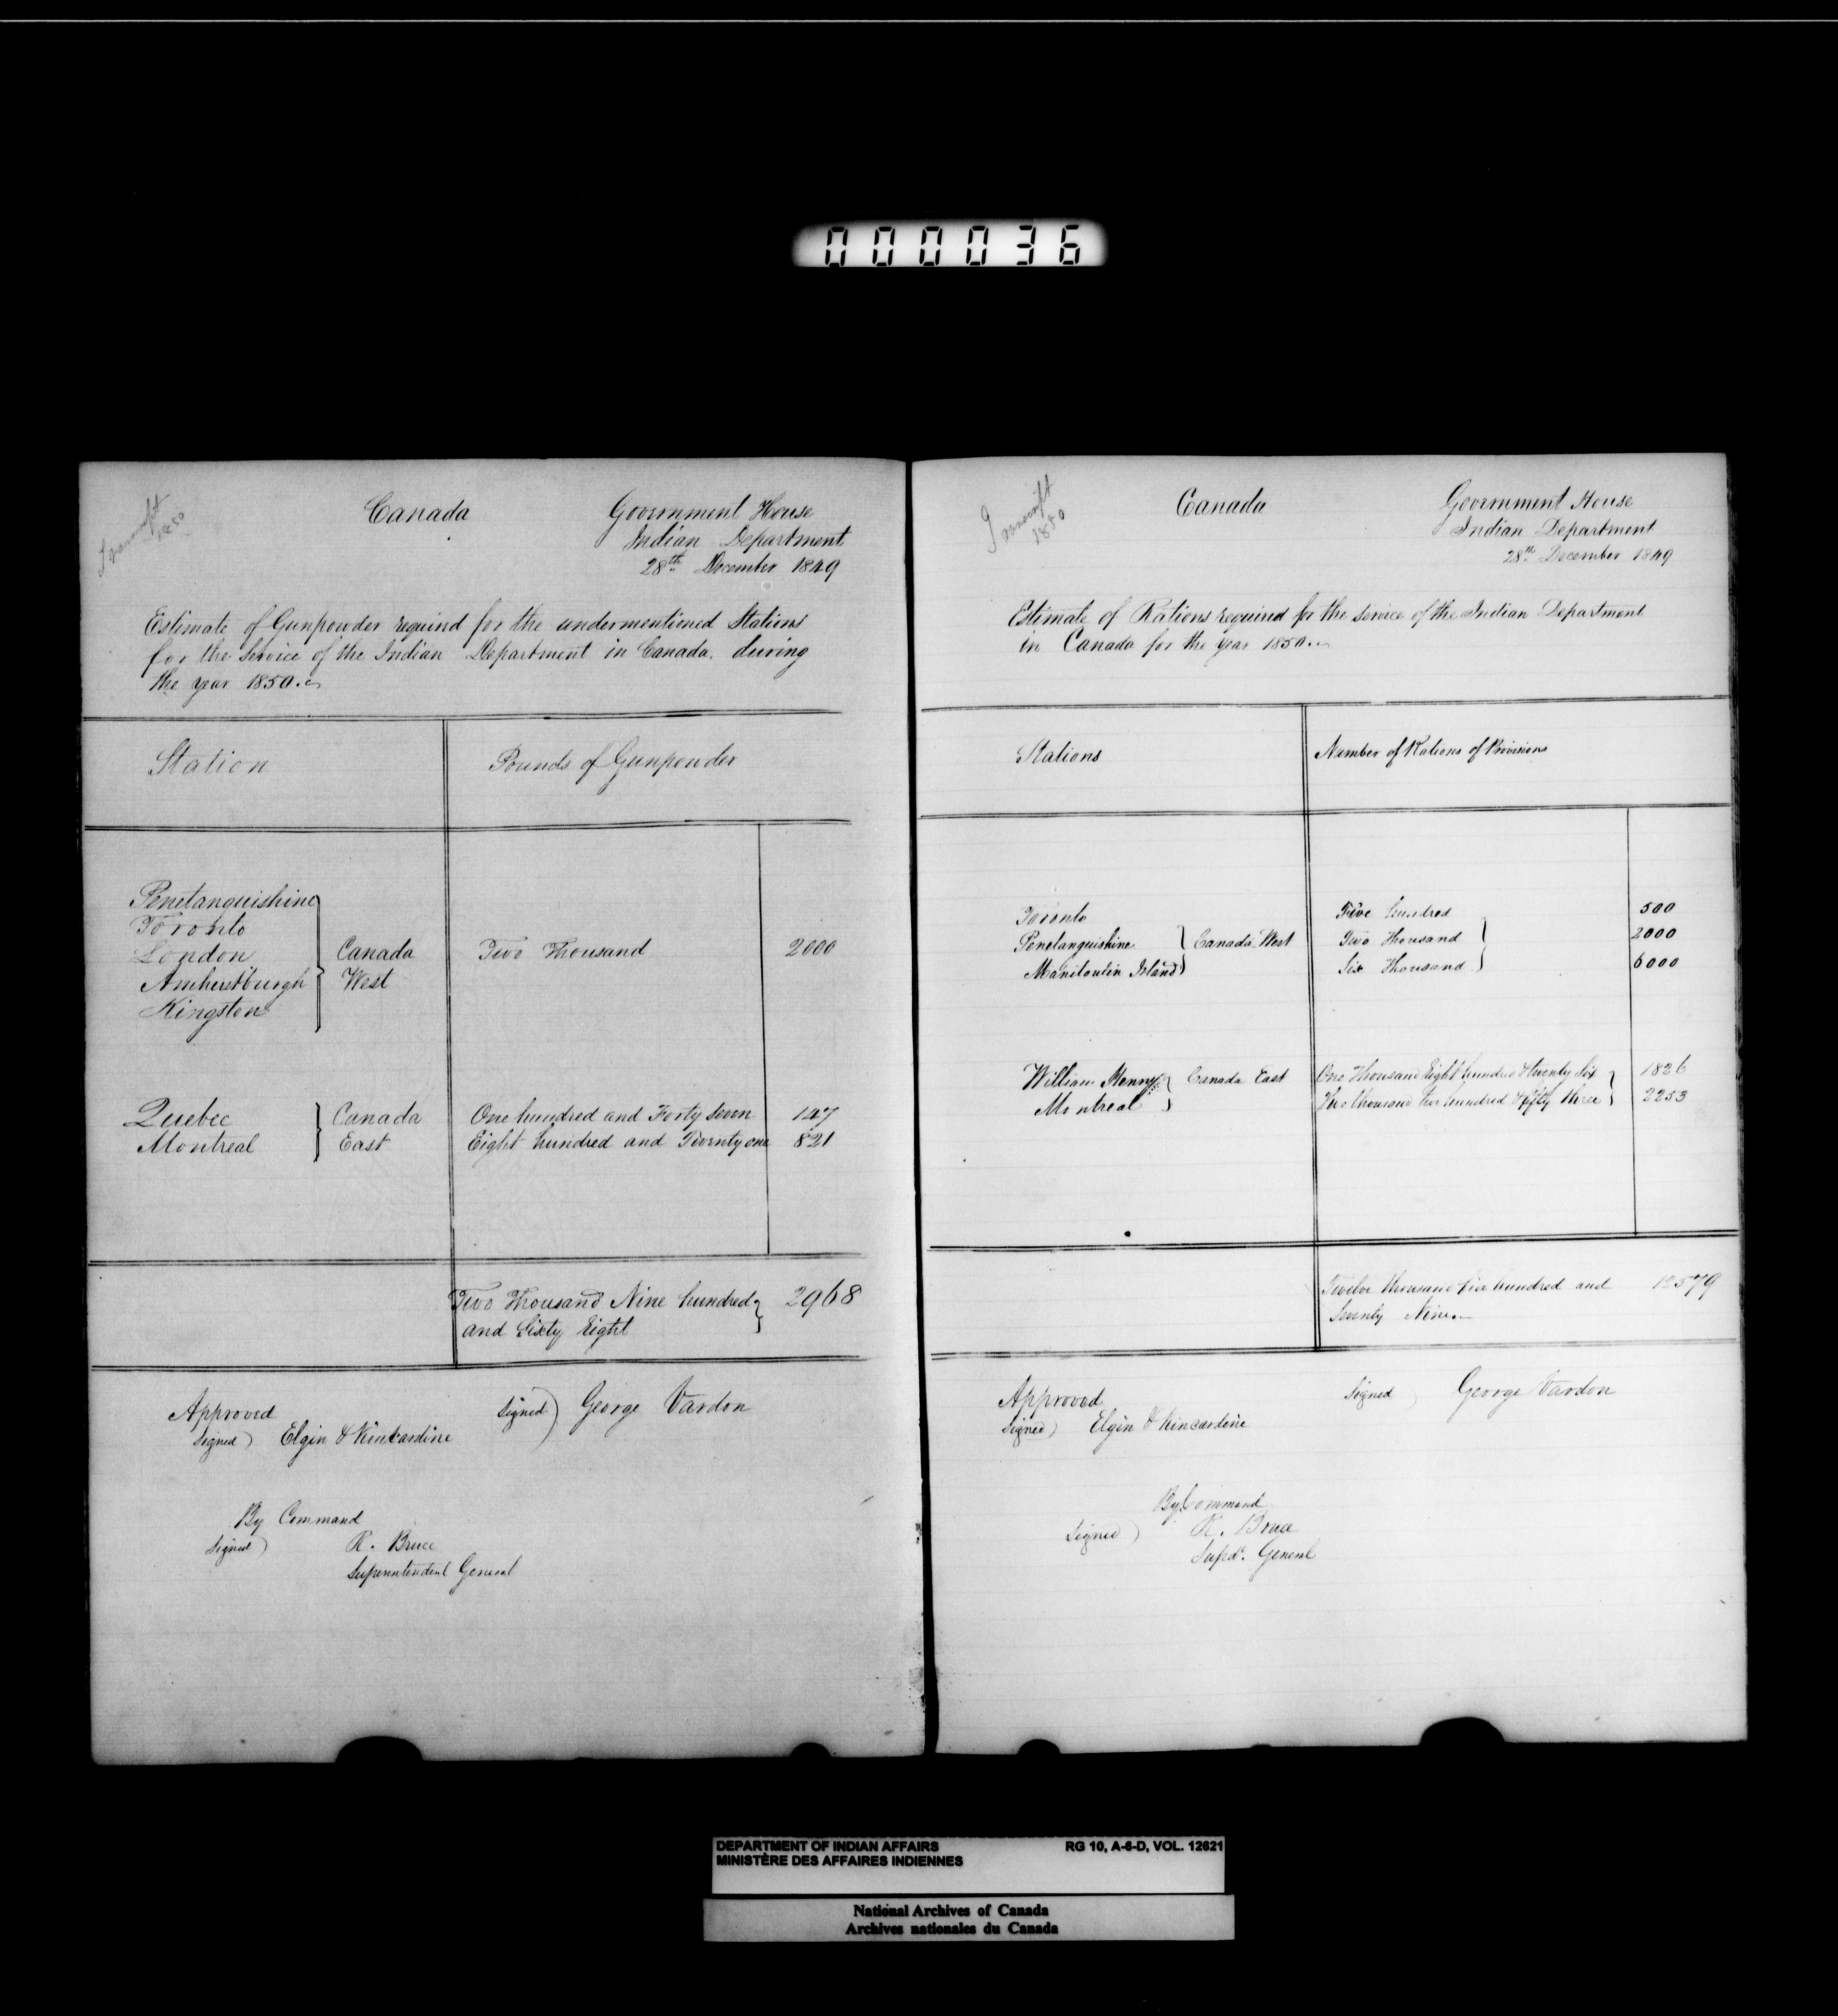 000036
Transcript
1850
Canada
Government House
Indian Department
28th December 1849
Estimate of Gunpowder required for the undermentioned Stations
for the Service of the Indian Department in Canada during
the year 1850.
Station
Pounds of Gunpowder
Penetanguishine
Toronto
London
Amherstburgh
Kingston
Canada
West
Two Thousand 2000
Quebec
Montreal
Canada
East
One hundred and Forty Seven 147
Eight hundred and Twenty one 821
Two Thousand Nine hundred 2968
and Sixty Eight
Approved
Signed) Elgin & Kincardine
Signed) George Vardon
By Command
Signed) R. Bruce
Superintendent General
Transcript
1850
Canada
Government House
Indian Department
28th December 1849
Estimate of Rations required for the service of the Indian Department
in Canada for the year 1850.
Stations
Number of Rations of Provisions
Toronto
Penetanguishine
Manitoulin Island
Canada West
Five hundred 500
Two Thousand 2000
Six Thousand 6000
William Henry
Montreal
Canada East
One Thousand Eight hundred & twenty Six 1826
Two thousand two hundred & fifty three 2253
Twelve thousand five hundred and 12579
Seventy Nine.
Approved
Signed) Elgin & Kincardine
Signed) George Vardon
By Command
Signed) R. Bruce
Supdt. General
DEPARTMENT OF INDIAN AFFAIRS RG 10, A-6-D, VOL. 12621
MINISTÈRE DES AFFAIRES INDIENNES
National Archives of Canada
Archives nationales du Canada